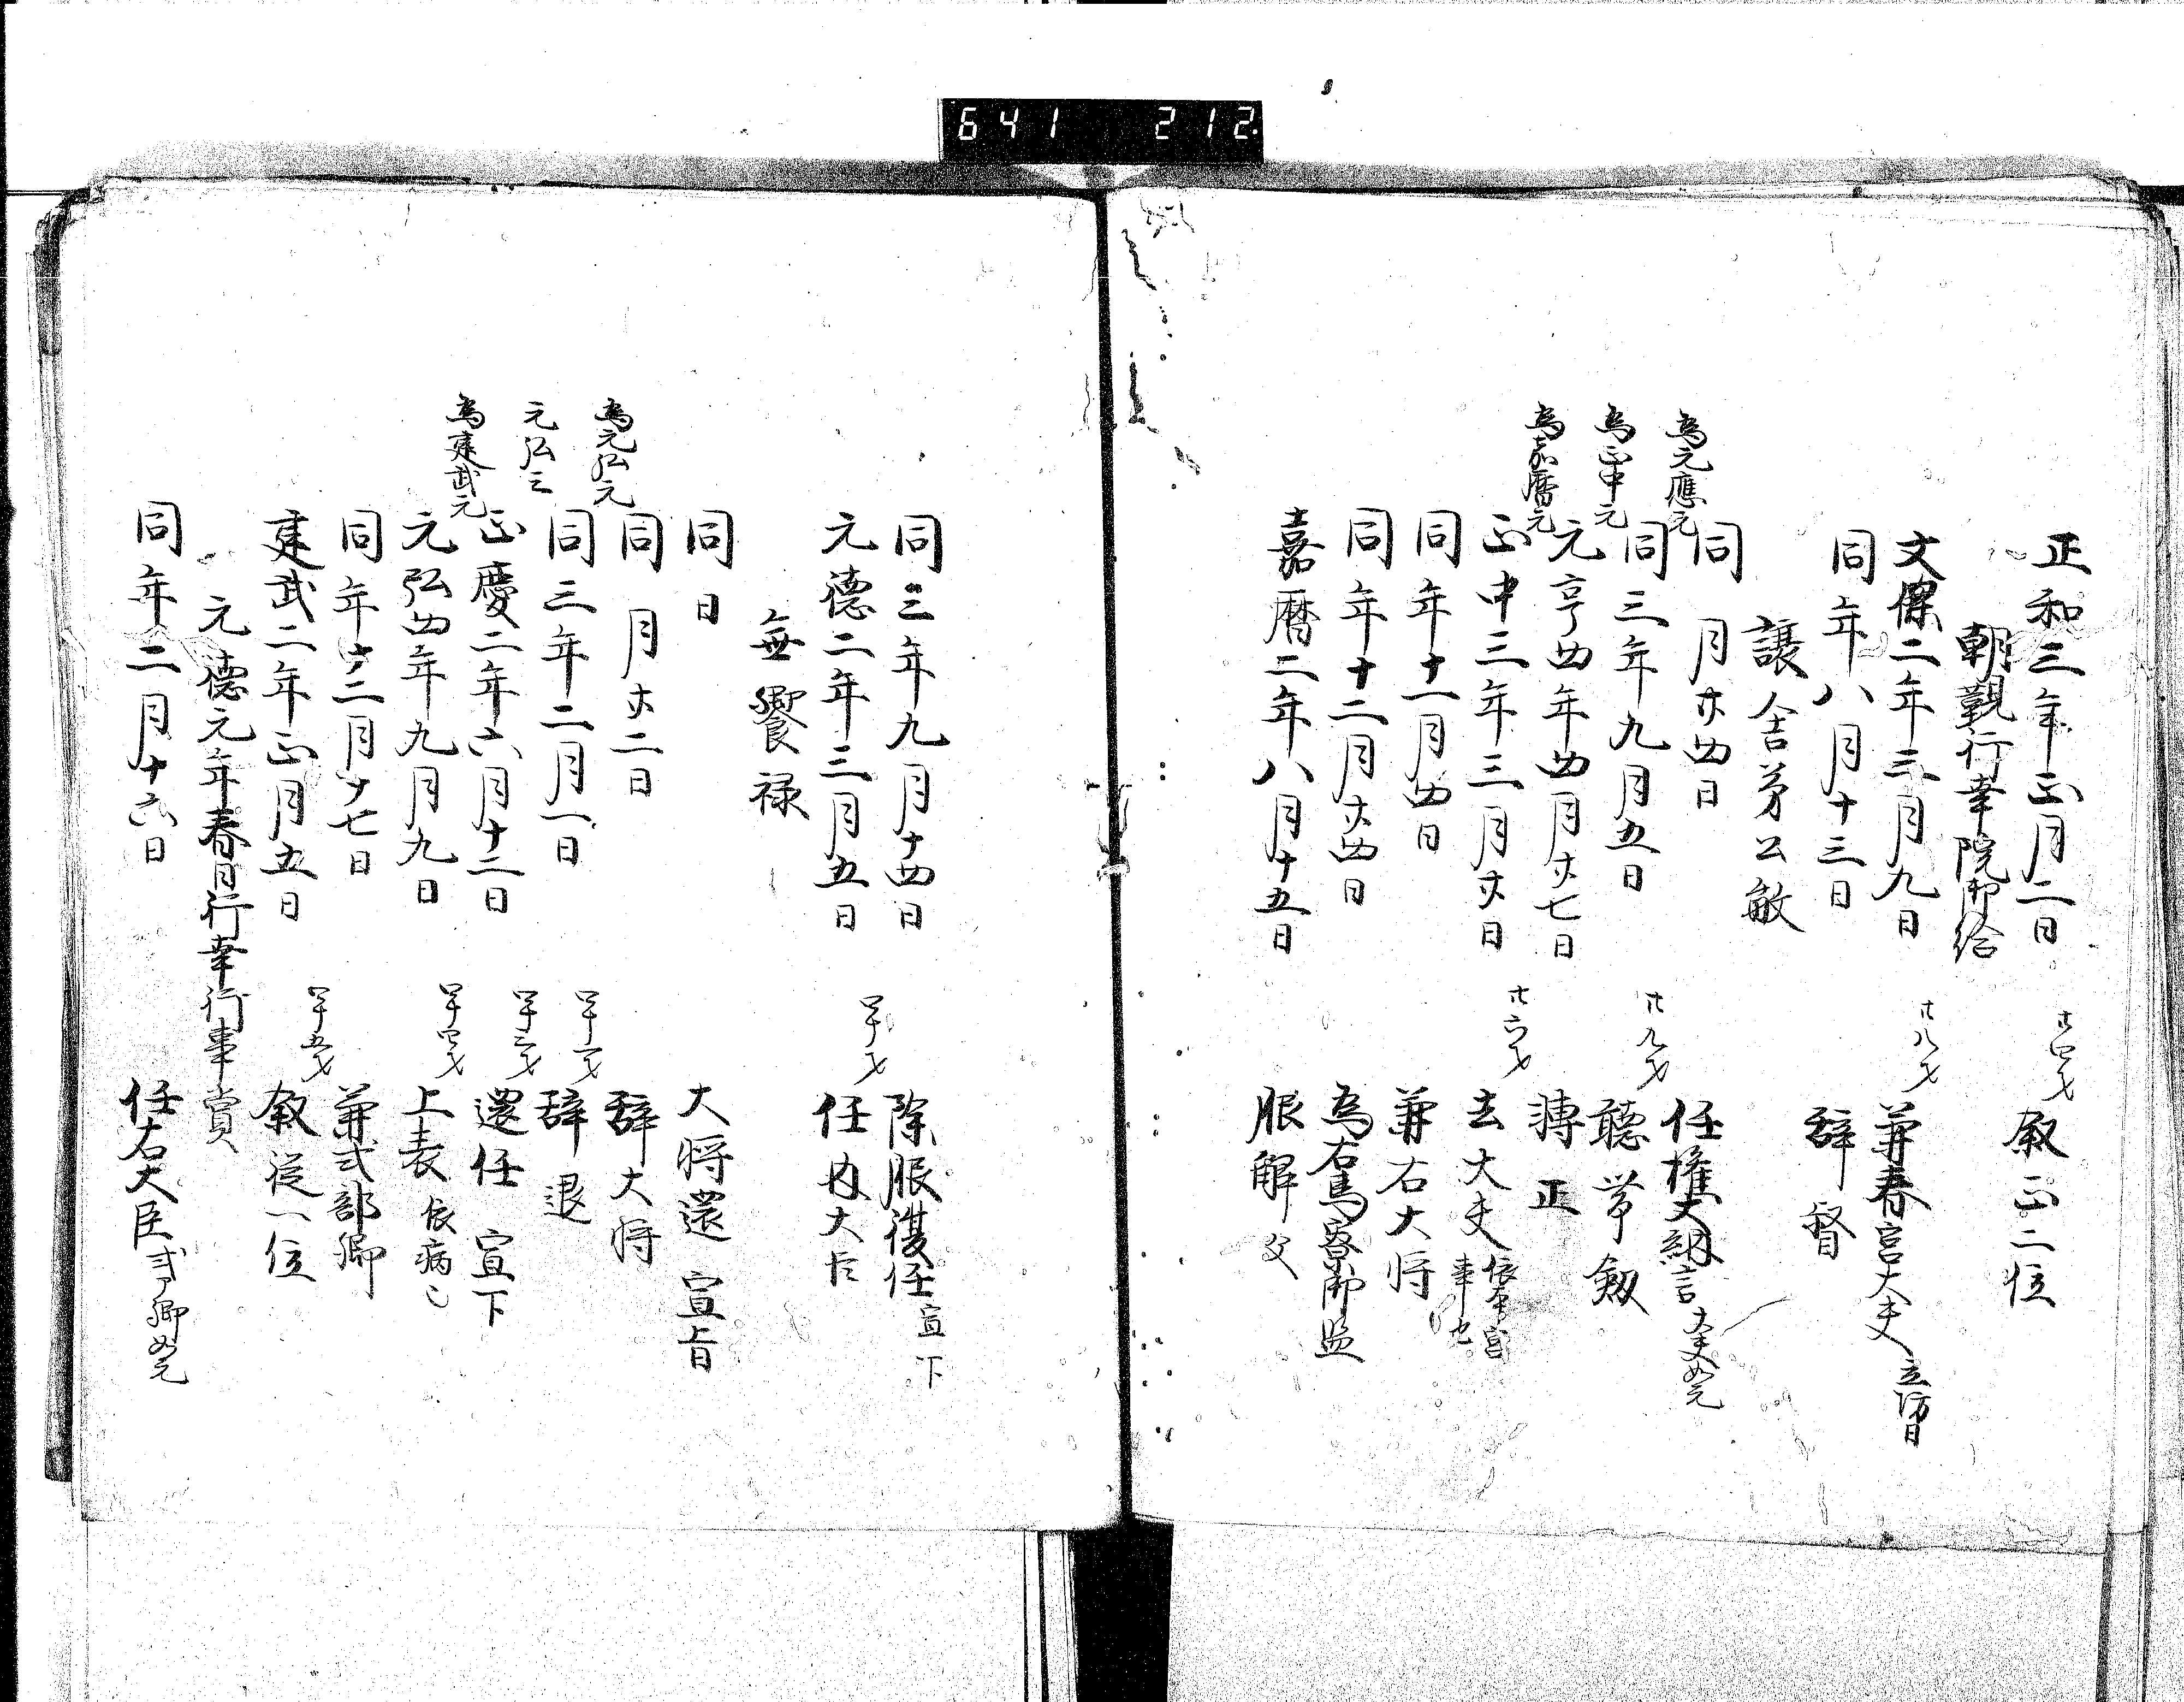 641 212
正和三年正月二日 廿四才 叙正二位
朝覲行幸院御給
文保二年三月九日 廿八才 兼春宮大夫 立坊日
同年八月十三日 辞督
譲舎弟公敏
為元應元
同月廿四日 任権大納言 大夫如元
為正中元
同三年九月五日 廿九才 聴帯剱
為嘉暦元
元亨四年四月廿七日 轉正
正中三年三月廿日 卅六才 去大夫 依本宮事也
同年十一月四日 兼右大将
同年十二月廿四日 為右馬寮御監
嘉暦二年八月十五日 服解 父
同三年九月十四日 除服復任 宣下
元徳二年三月五日 四十才 任内大臣
無饗禄
同日 大将還宣旨
為元弘元
同月廿二日 辞大将
元弘三
同三年二月一日 四十一才 辞退
為建武元
正慶二年六月十二日 四十三才 還任 宣下
元弘四年九月九日 四十四才 上表 依病也
同年十二月十七日 兼式部卿
建武二年正月五日 四十五才 叙従一位
元徳元年春日行幸行事賞
同年二月十六日 任右大臣 式ア卿如元